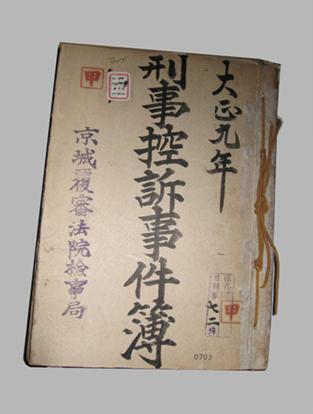 大正九年
刑事控訴事件簿
京城覆審法院検事局
甲
甲
七二
0703